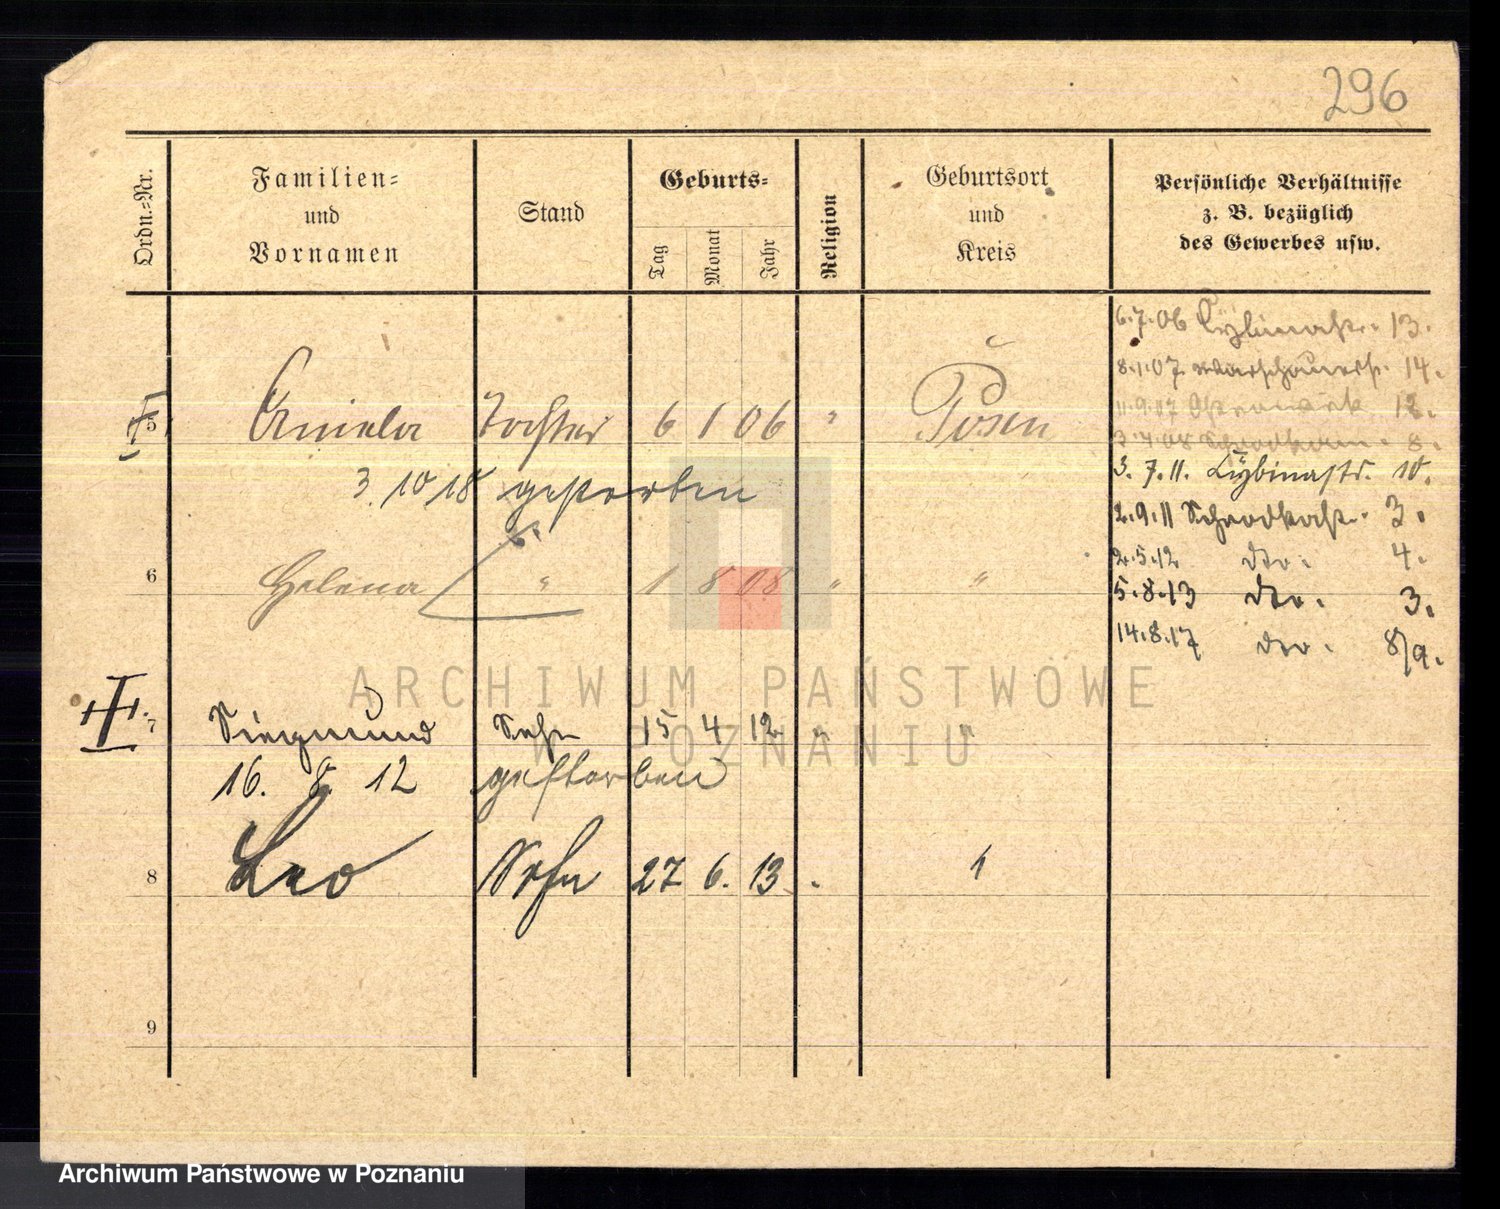 296
Ordn.=Nr.
Familien=
und
Vornamen
Stand
Geburts=
Tag
Monat
Jahr
Religion
Geburtsort
und
Kreis
Persönliche Verhältnisse
z. B. bezüglich
des Gewerbes usw.
6.7.06 Cybinastr. 13.
8.1.07 Warschauerstr. 14.
11.9.07 Ostrowek 12.
8.
3.7.11. Cybinastr. 10.
2.9.11 Schrodkastr. 3.
2.5.12 dto. 4.
5.8.13 dto. 3.
14.8.17 dto. 8/9.
5 Aniela Tochter 6 1 06 " Posen
3. 10 18 gestorben
6 Helena " 1 8 08 " "
7 Siegmund Sohn 15 4 12 " "
16. 8 12 gestorben
8 Leo Sohn 27 6. 13 .
9
ARCHIWUM PAŃSTWOWE
W POZNANIU
Archiwum Państwowe w Poznaniu